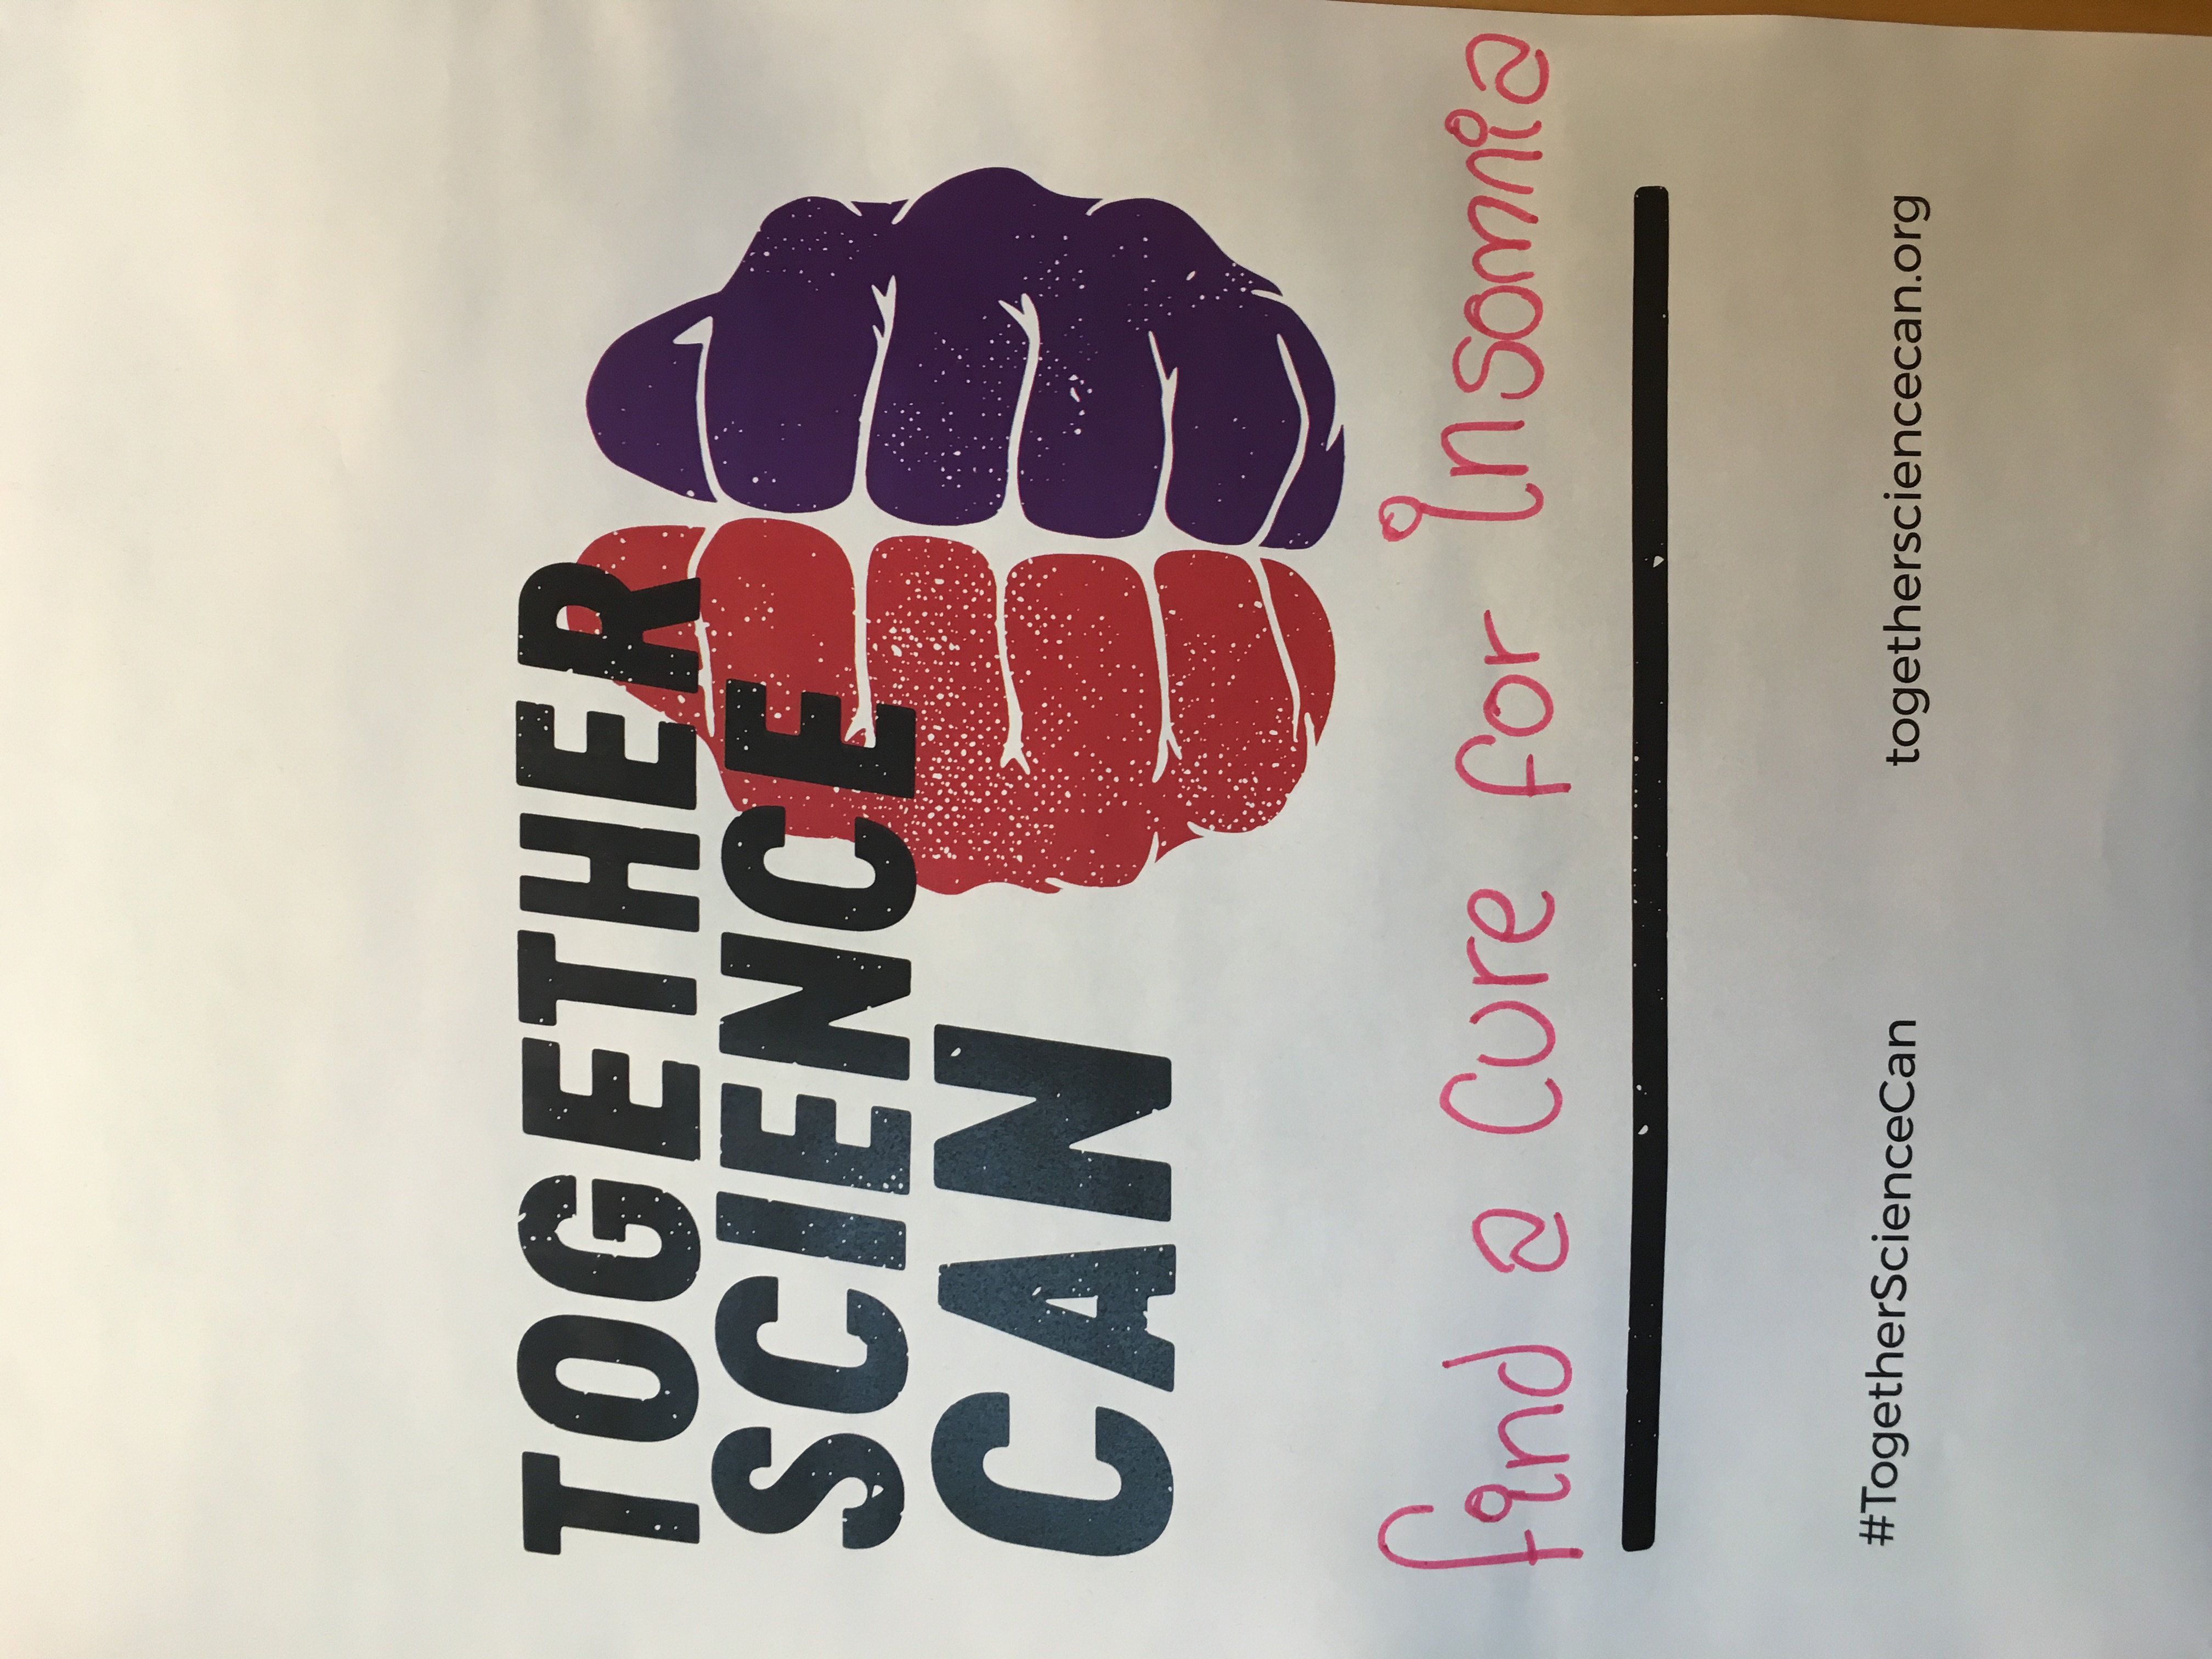 TOGETHER
SCIENCE
CAN
find a cure for insomnia
#TogetherScienceCan
togethersciencecan.org